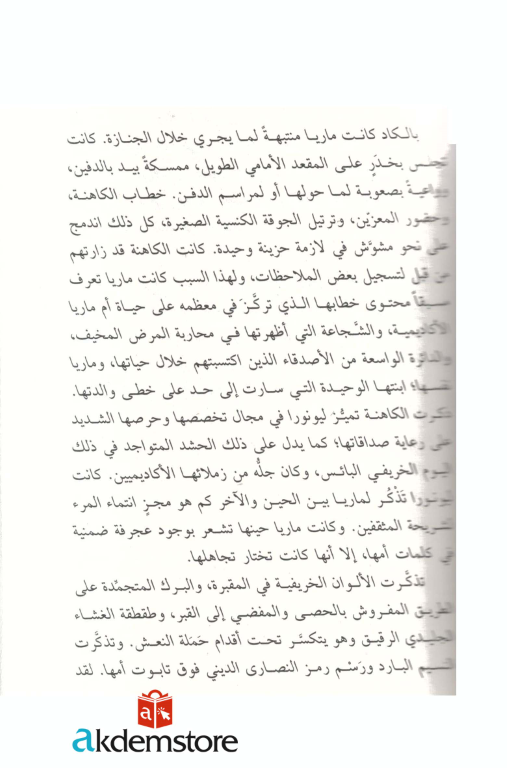 بالكاد كانت ماريا منتبهةً لما يجري خلال الجنازة. كانت
تجلس بخدَرٍ على المقعد الأمامي الطويل، ممسكةً بيد بالدفين،
وواعيةً بصعوبة لما حولها أو لمراسم الدفن. خطاب الكاهنة،
وحضور المعزّين، وترتيل الجوقة الكنسية الصغيرة، كل ذلك اندمج
على نحو مشوَّش في لازمة حزينة وحيدة. كانت الكاهنة قد زارتهم
من قبل لتسجيل بعض الملاحظات، ولهذا السبب كانت ماريا تعرف
مسبقاً محتوى خطابها الذي تركَّزَ في معظمه على حياة أم ماريا
الأكاديمية، والشَّجاعة التي أظهرتها في محاربة المرض المخيف،
والدائرة الواسعة من الأصدقاء الذين اكتسبتهم خلال حياتها، وماريا
نفسها؛ ابنتها الوحيدة التي سارت إلى حد على خطى والدتها.
ذكرت الكاهنة تميُّز ليونورا في مجال تخصصها وحرصها الشديد
على رعاية صداقاتها؛ كما يدل على ذلك الحشد المتواجد في ذلك
اليوم الخريفي البائس، وكان جلُّه من زملائها الأكاديميين. كانت
ليونورا تَذْكُر لماريا بين الحين والآخر كم هو مجزٍ انتماء المرء
لشريحة المثقفين. وكانت ماريا حينها تشعر بوجود عجرفة ضمنيّة
في كلمات أمها، إلا أنها كانت تختار تجاهلها.
تذكَّرت الألوان الخريفية في المقبرة، والبرك المتجمِّدة على
الطريق المفروش بالحصى والمفضي إلى القبر، وطقطقة الغشاء
الجليدي الرقيق وهو يتكسَّر تحت أقدام حمَلة النعش. وتذكَّرت
النسيم البارد ورَسْم رمز النصارى الديني فوق تابوت أمها. لقد
a
akdemstore